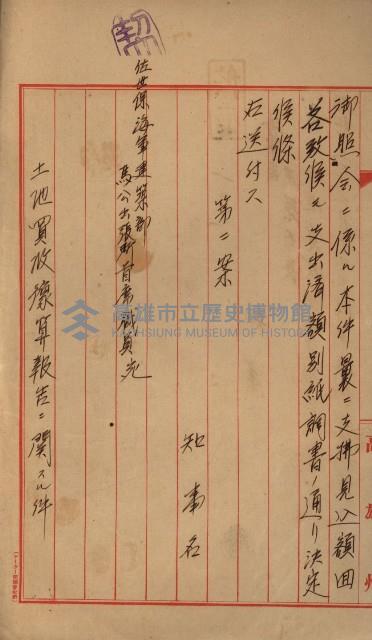 御照会ニ係ル本件曩ニ支拂見込額回
答致候ヘ共支出済額別紙調書ノ通リ決定
候條
右送付ス
第二案
知事名
佐世保海軍建築部
馬公出張所首席部員宛
土地買収豫算報告ニ関スル件
高雄州
高雄市立歷史博物館
KAOHSIUNG MUSEUM OF HISTORY